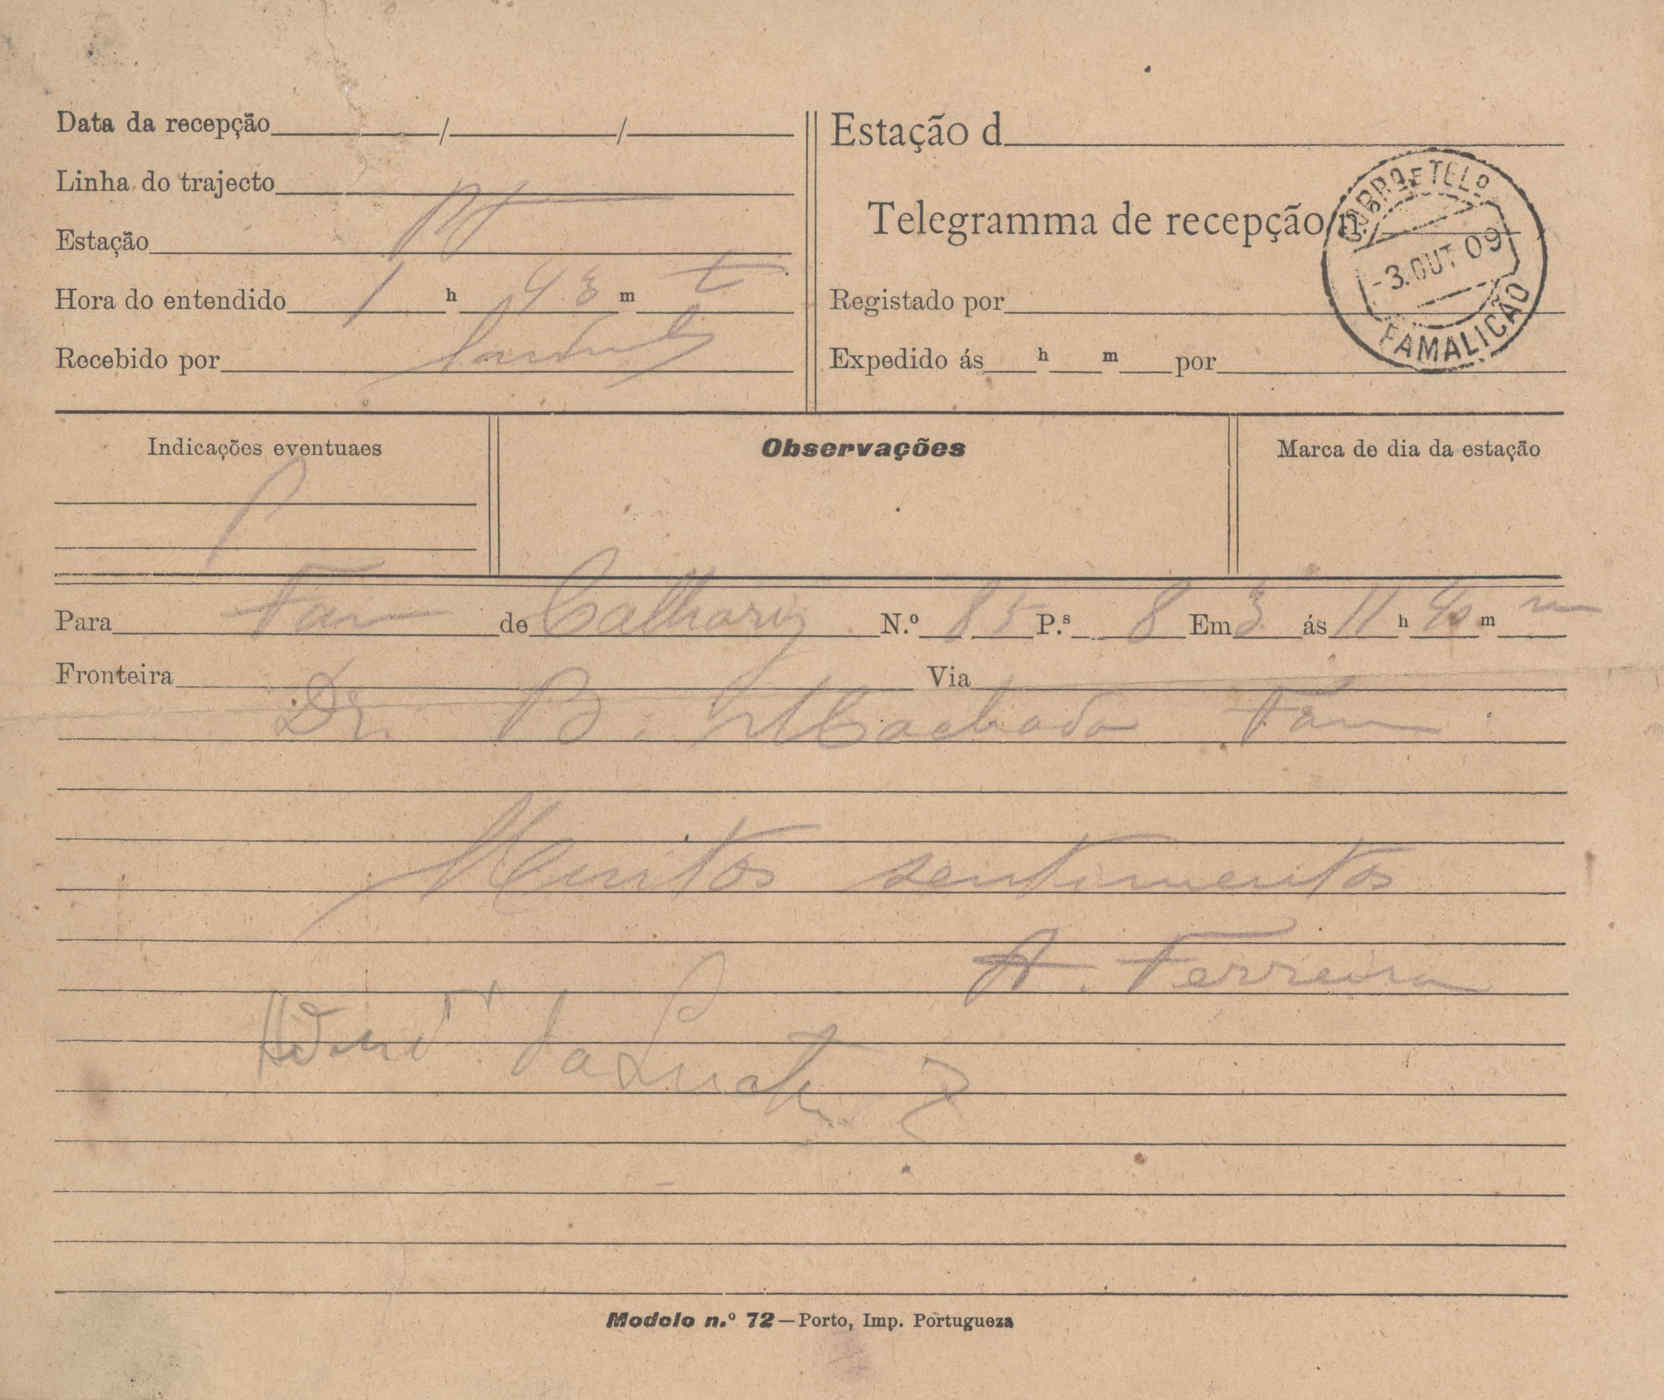 Data da recepção / /
Linha do trajecto
Estação Pt
Hora do entendido 1 h 43 m t
Recebido por
Estação d
Telegramma de recepção n.
Registado por
Expedido ás h m por
CORRO. E TELO.
-3.OUT.09
FAMALICÃO
Indicações eventuaes
P
Observações
Marca de dia da estação
Para Fam de Calhariz N.º 85 P.s 8 Em 3 ás 11 h 40 m m
Fronteira Via
Dr. B. Machado Fam
Muitos sentimentos
A. Ferreira
Modelo n.º 72—Porto, Imp. Portugueza